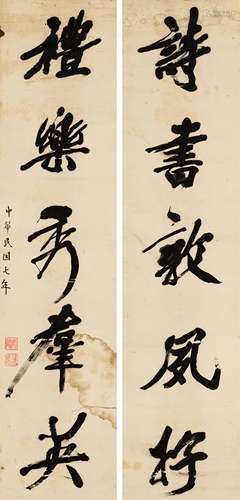 詩書敦夙好
禮樂秀羣英
中華民國七年